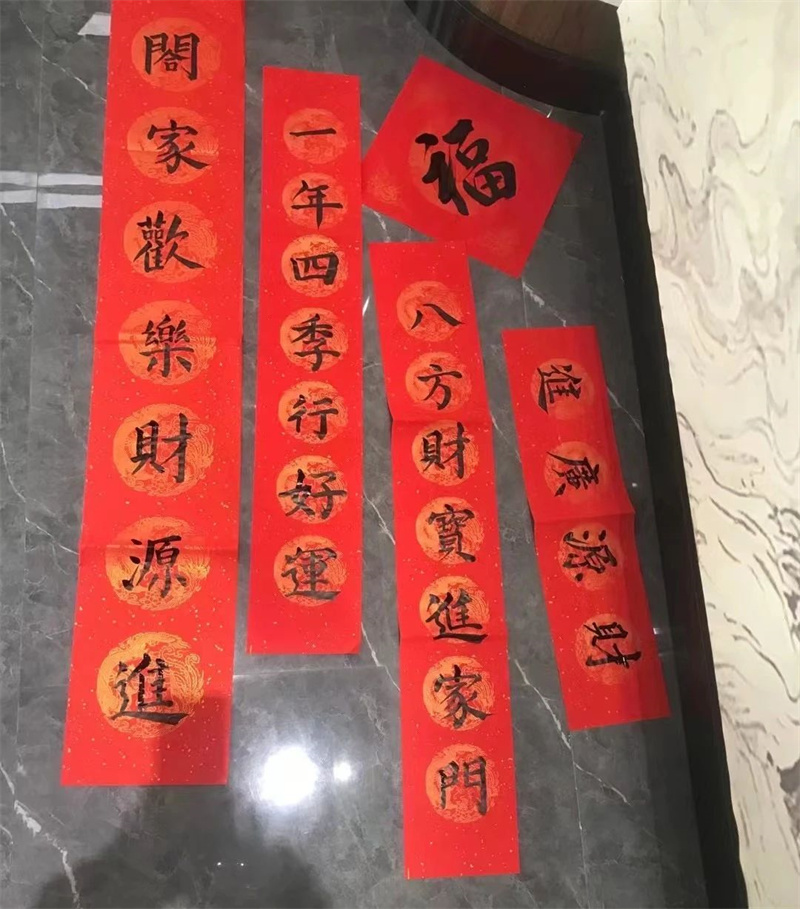 閤家歡樂財源進
一年四季行好運
福
八方財寶進家門
財源廣進